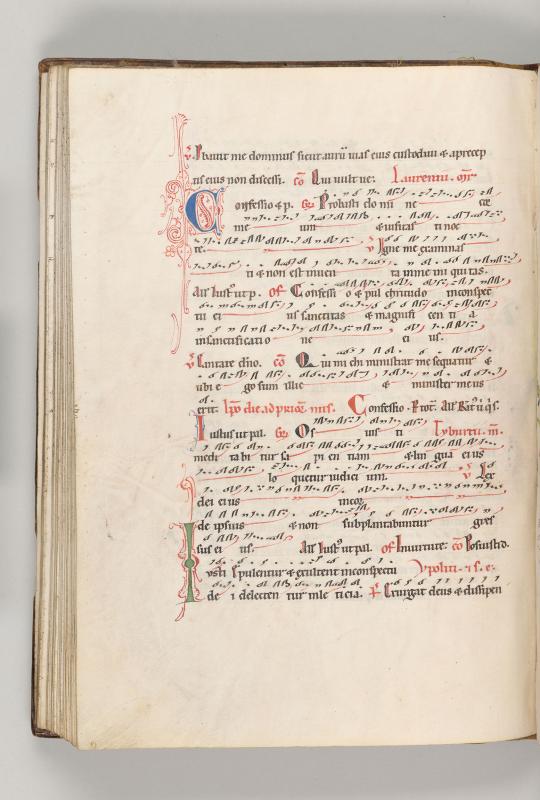 bauit me dominus sicut aurū uias eius custodiui & a precep
tis eius non discessi. co Qui uult ue: Laurentii. mr.
Confessio & p. Gr Probasti do mi ne cor
me um & uisitas ti noc
te. v Igne me examinas
ti & non est inuen ta in me iniquitas.
All Iust' ut p. of Confessi o & pul chritudo in conspec
tu ei us sanctitas & magnifi cen ti a
in sanctificatio ne ei us.
v Cantate dño. co Qui mi chi ministrat me sequatur &
ubi e go sum illic & minister meus
erit. Confessio.
Iustus ut pal. Gr Os ius ti Tyburtii. m.
medi tabi tur sa pi en tiam & lin gua eius
lo quetur iudici um. v Lex
dei eius in cor
de ipsius & non subplantabuntur gres
sus ei us. All Iust' ut pal. of In uirtute. co Posuisti d.
Iusti epulentur & exultent in conspectu ypoliti. & s. e.
de i delecten tur in le ticia. Exurgat deus & dissipen